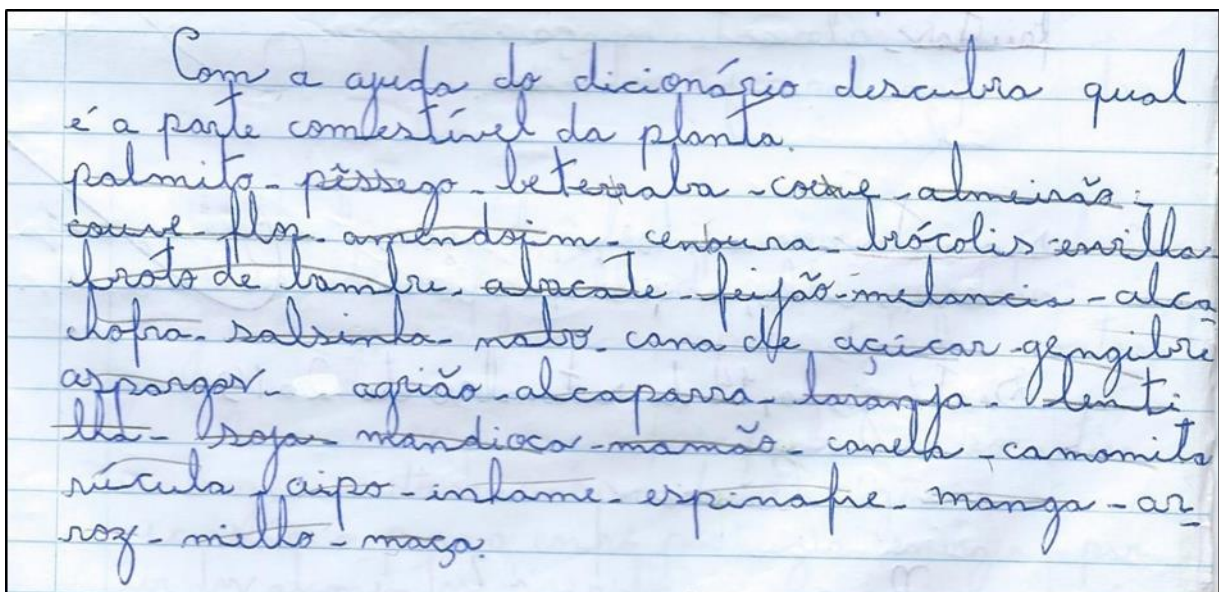 Com a ajuda do dicionário descubra qual
é a parte comestível da planta.
palmito - pêssego - beterraba - couve - almeirão -
couve-flor - amendoim - cenoura - brócolis - ervilha -
broto de bambu - abacate - feijão - melancia - alca
chofra - salsinha - nabo - cana de açúcar - gengibre
aspargos - agrião - alcaparra - laranja - lenti
lha - soja - mandioca - mamão - canela - camomila
rúcula - aipo - inhame - espinafre - manga - ar
roz - milho - maça.